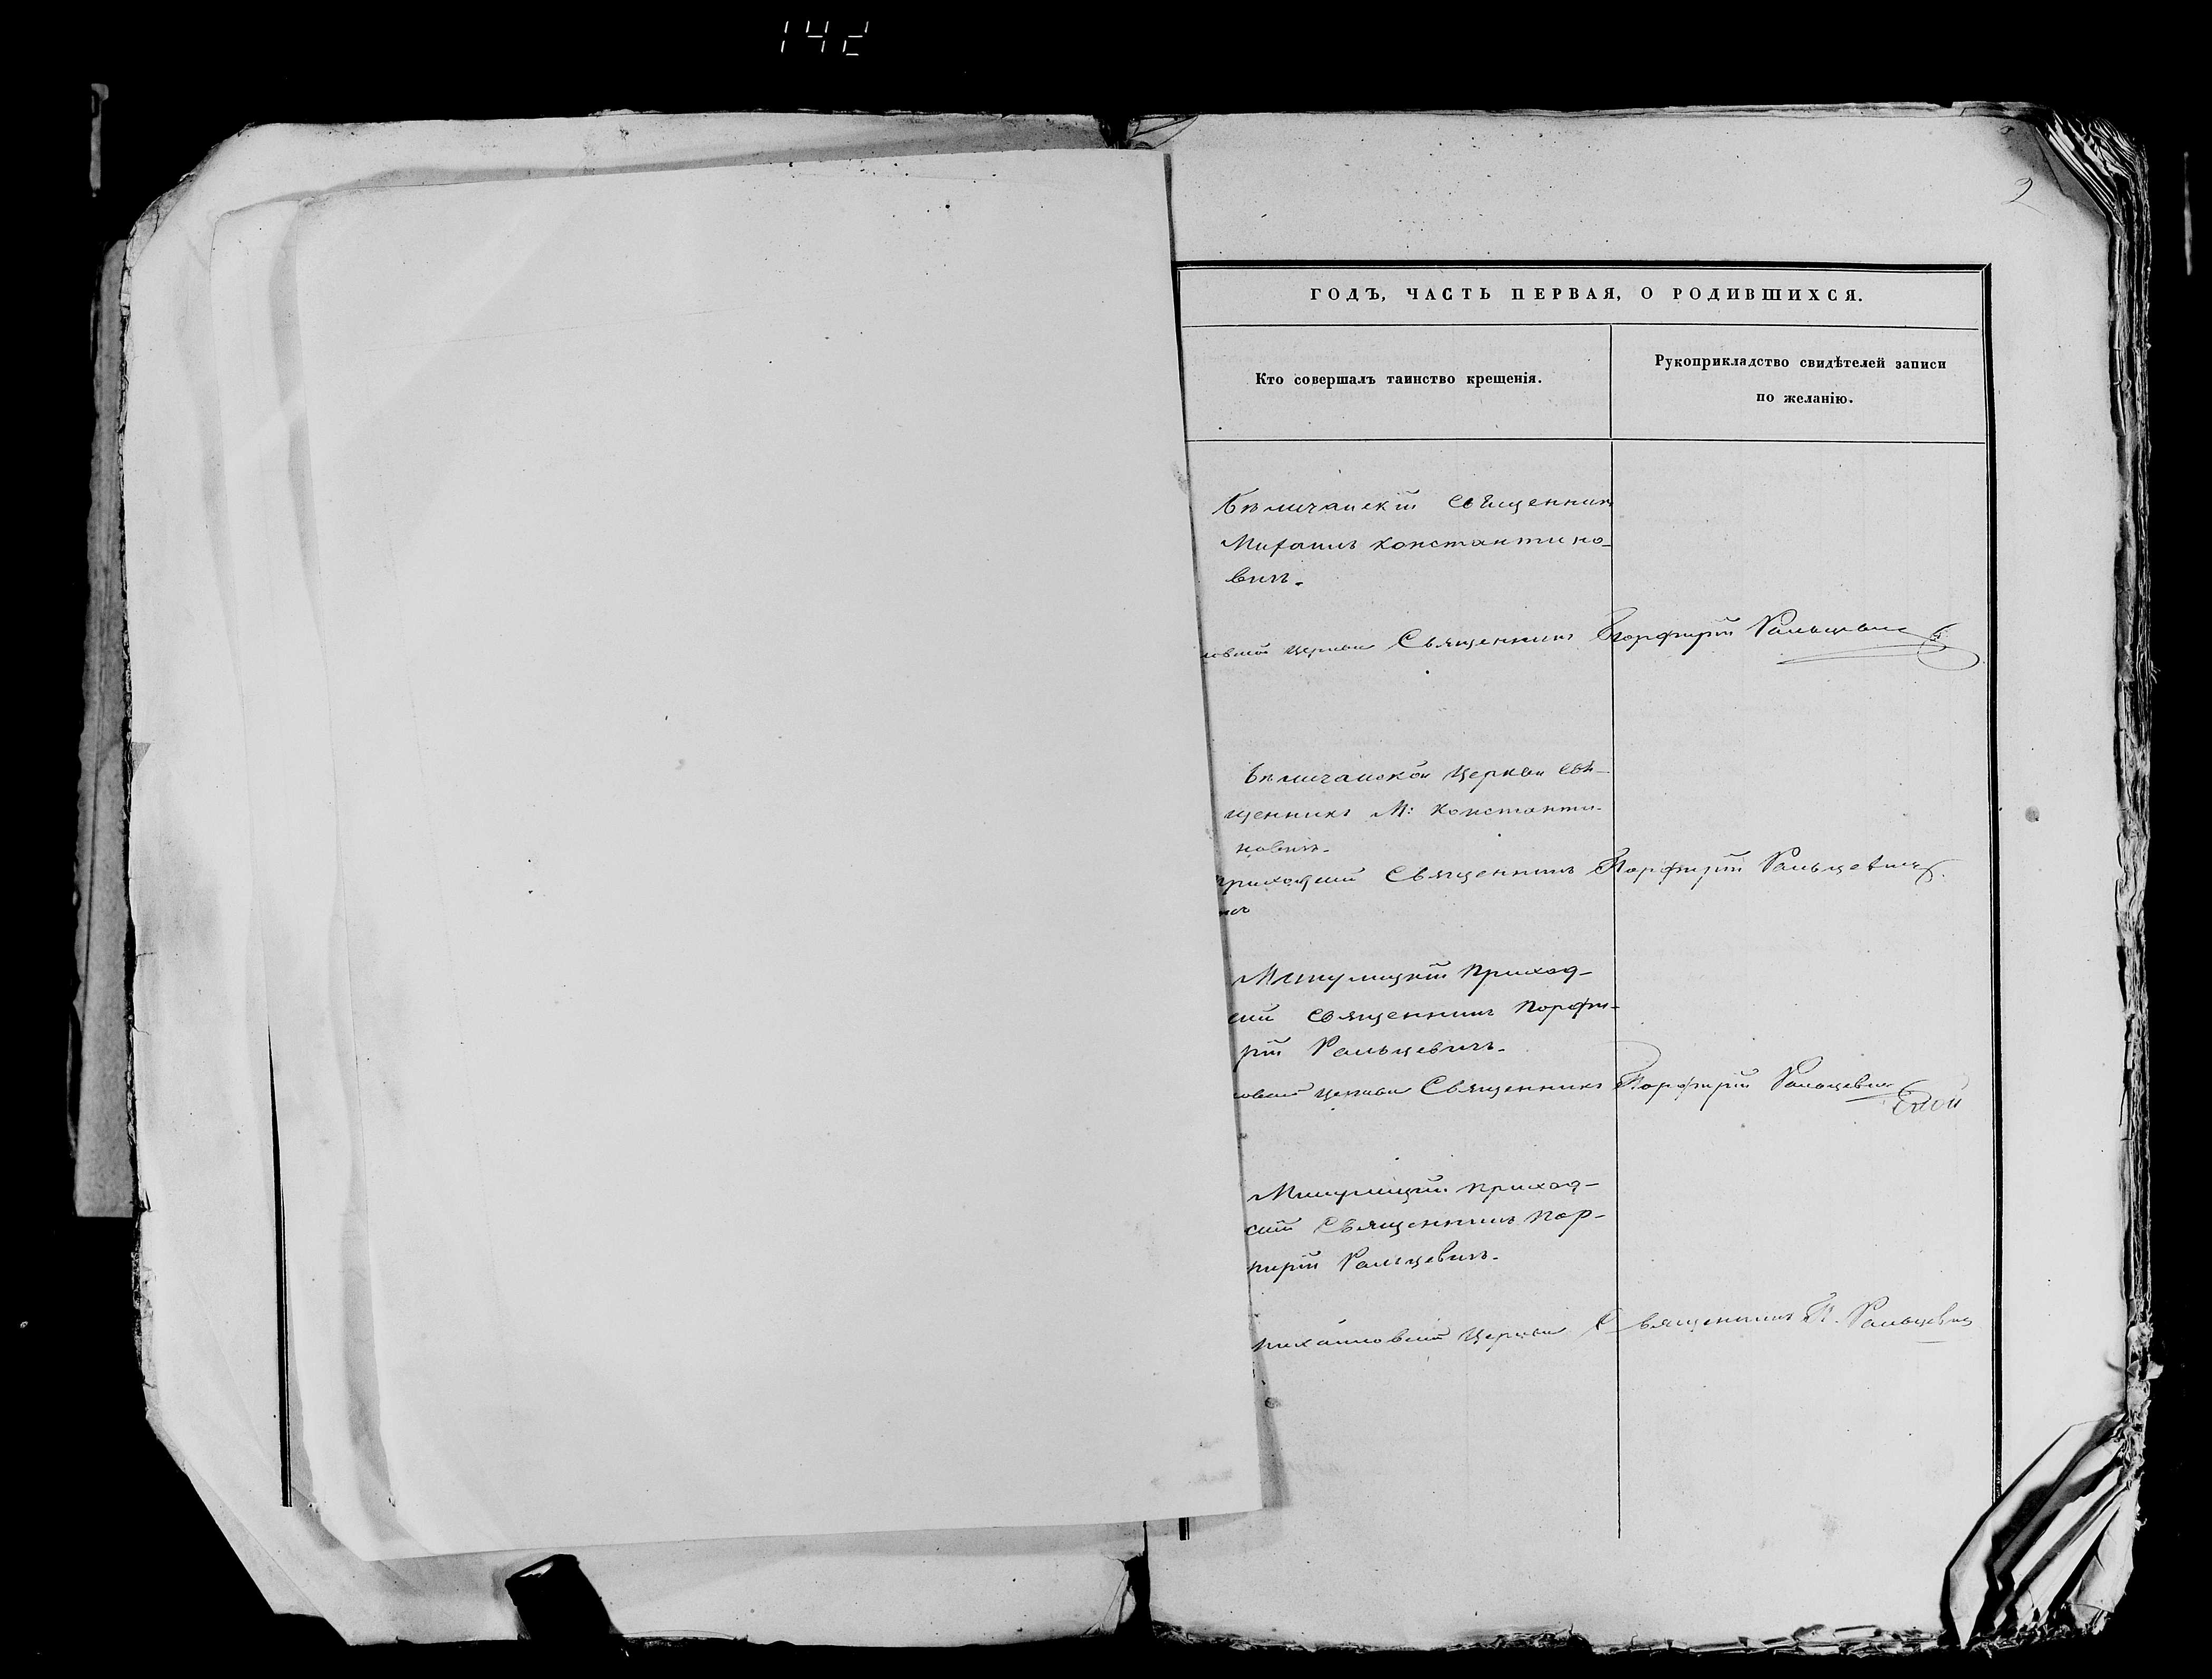 142
2
ГОДЪ, ЧАСТЬ ПЕРВАЯ, О РОДИВШИХСЯ.
Кто совершалъ таинство крещенія.
Рукоприкладство свидѣтелей записи
по желанію.
Бѣличанскій Священникъ
Михаилъ Константино-
вичъ.
Церкви Священникъ ПорфирійРальцевичъ
Бѣличанской Церкви Свя-
щенникъ М: Константи-
новичъ.
приходскій Священникъ Порфирій Ральцевичъ
Микулицкій приход-
скій Священникъ Порфи-
рій Ральцевичъ.
Церкви Священникъ Порфирій Ральцевичъ
Микулицкій приход-
скій Священникъ Пор-
фирій Ральцевичъ.
Михайловской Церкви Священникъ П. Ральцевичъ